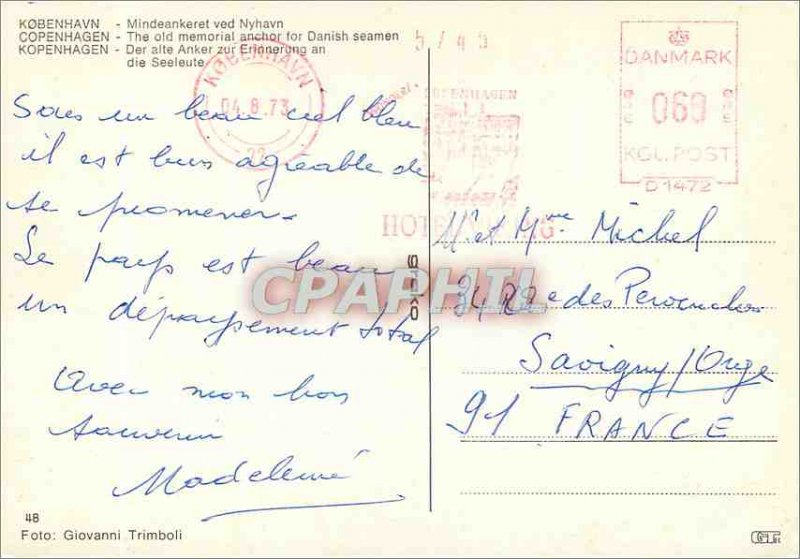 KØBENHAVN - Mindeankeret ved Nyhavn
COPENHAGEN - The old memorial anchor for Danish seamen
KOPENHAGEN - Der alte Anker zur Erinnerung an
die Seeleute
KØBENHAVN
04.8.73
22
COPENHAGEN
DANMARK
060
KGL. POST
D1472
Sous un beau ciel bleu
il est bien agréable de
se promener.
Le pays est beau
un dépaysement total
Avec mon bon
souvenir
Madeleine
M. et Mme Michel
des
Savigny/Orge
91 FRANCE
STEIKO
CPAPHIL
48
Foto: Giovanni Trimboli